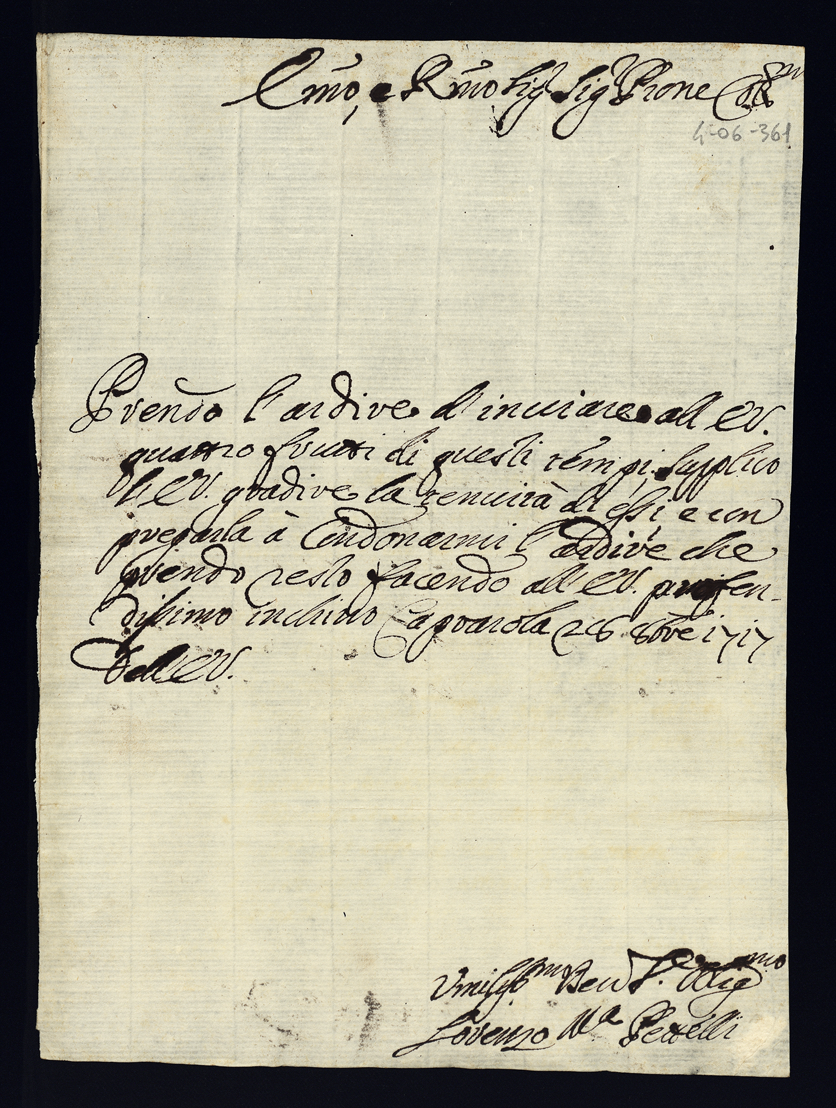 Emo, e Rmo Sig.r Sig.r Prone Col.mo
4-06-361
Prendo l'ardire d'inviare all'EV.
quattro frutti di questi tempi. supplico
l'EV. gradire la tenuità di essi, e con
pregarla à Condonarmi l'ardire che
prendo resto facendo all'EV. profon-
dissimo inchino Caprarola 26 8bre 1717
Dell'EV.
Umiliss.mo Dev.o S.r Oblig.mo
Lorenzo Ma